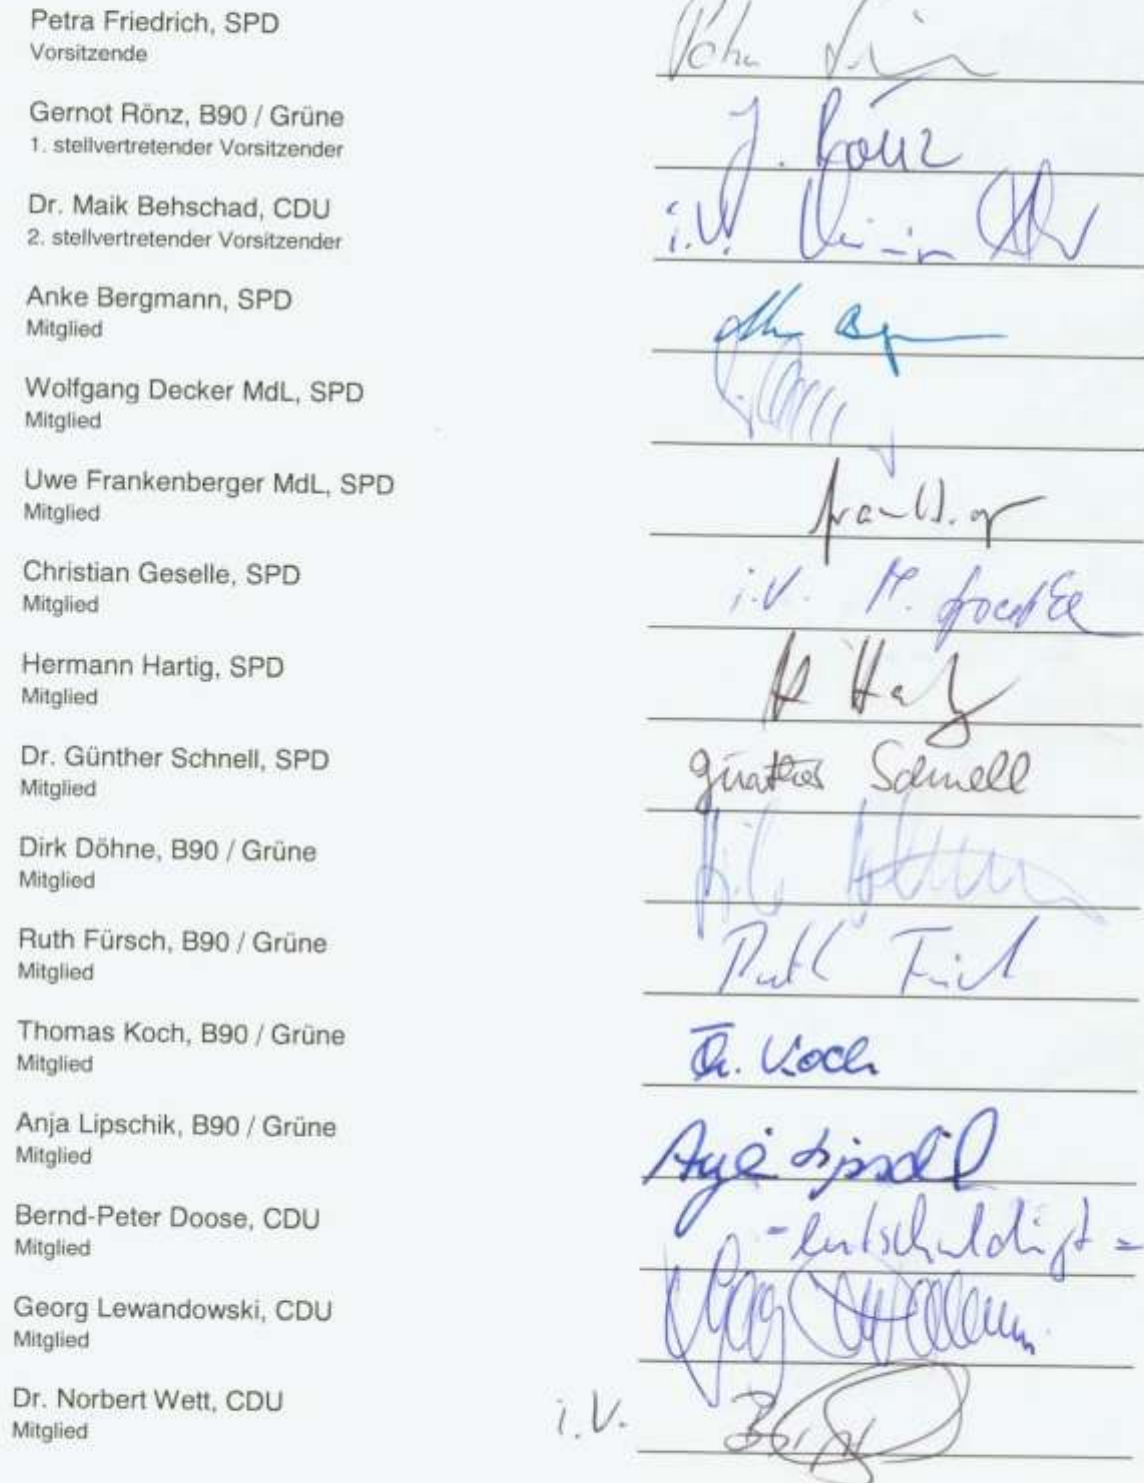 Petra Friedrich, SPD
Vorsitzende
Gernot Rönz, B90 / Grüne
J. Rönz
1. stellvertretender Vorsitzender
Dr. Maik Behschad, CDU
i.V.
2. stellvertretender Vorsitzender
Anke Bergmann, SPD
Mitglied
Wolfgang Decker MdL, SPD
Mitglied
Uwe Frankenberger MdL, SPD
Mitglied
Christian Geselle, SPD
i.V.
Mitglied
Hermann Hartig, SPD
Mitglied
Dr. Günther Schnell, SPD
Günther Schnell
Mitglied
Dirk Döhne, B90 / Grüne
Mitglied
Ruth Fürsch, B90 / Grüne
Ruth
Mitglied
Thomas Koch, B90 / Grüne
Th. Koch
Mitglied
Anja Lipschik, B90 / Grüne
Anja Lipschik
Mitglied
Bernd-Peter Doose, CDU
- entschuldigt -
Mitglied
Georg Lewandowski, CDU
Mitglied
Dr. Norbert Wett, CDU
i.V.
Mitglied